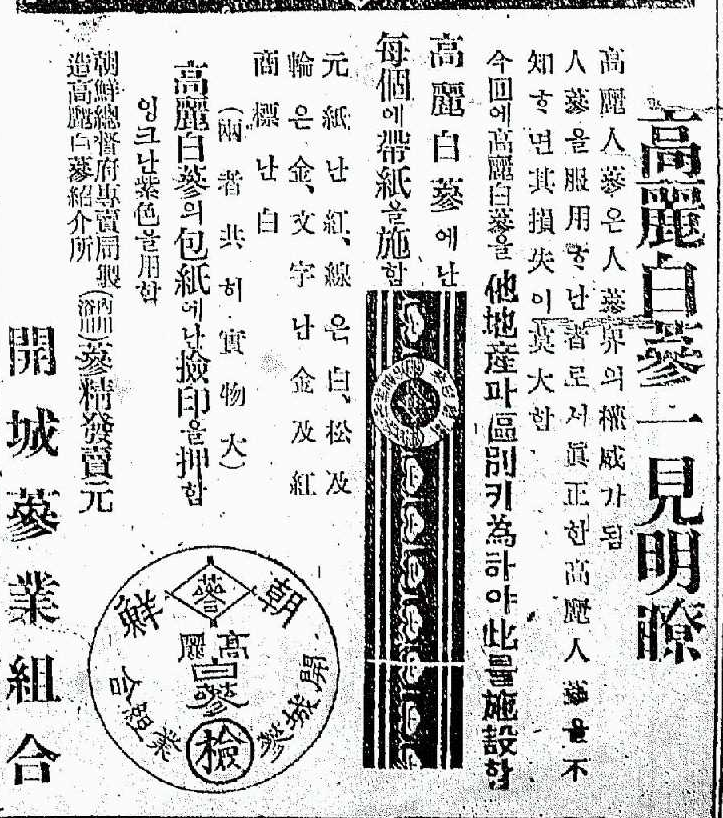 高麗白蔘一見明瞭
高麗人蔘은人蔘界의權威가됨
人蔘을服用ᄒᆞ난者로서眞正한高麗人蔘을不
知ᄒᆞ면其損失이莫大함
今回에高麗白蔘을他地産과區別키為하야此를施設함
高麗白蔘에난
每個에帶紙을施함
元紙난紅、線은白、松及
輪은金、文字난金及紅
商標난白
(兩者共히實物大)
高麗白蔘의包紙에난檢印을押함
잉크난紫色을用함
朝鮮總督府專賣局製
造高麗白蔘紹介所
蔘精發賣元
開城蔘業組合
朝鮮
蔘
高麗
白蔘
開城蔘業組合
檢